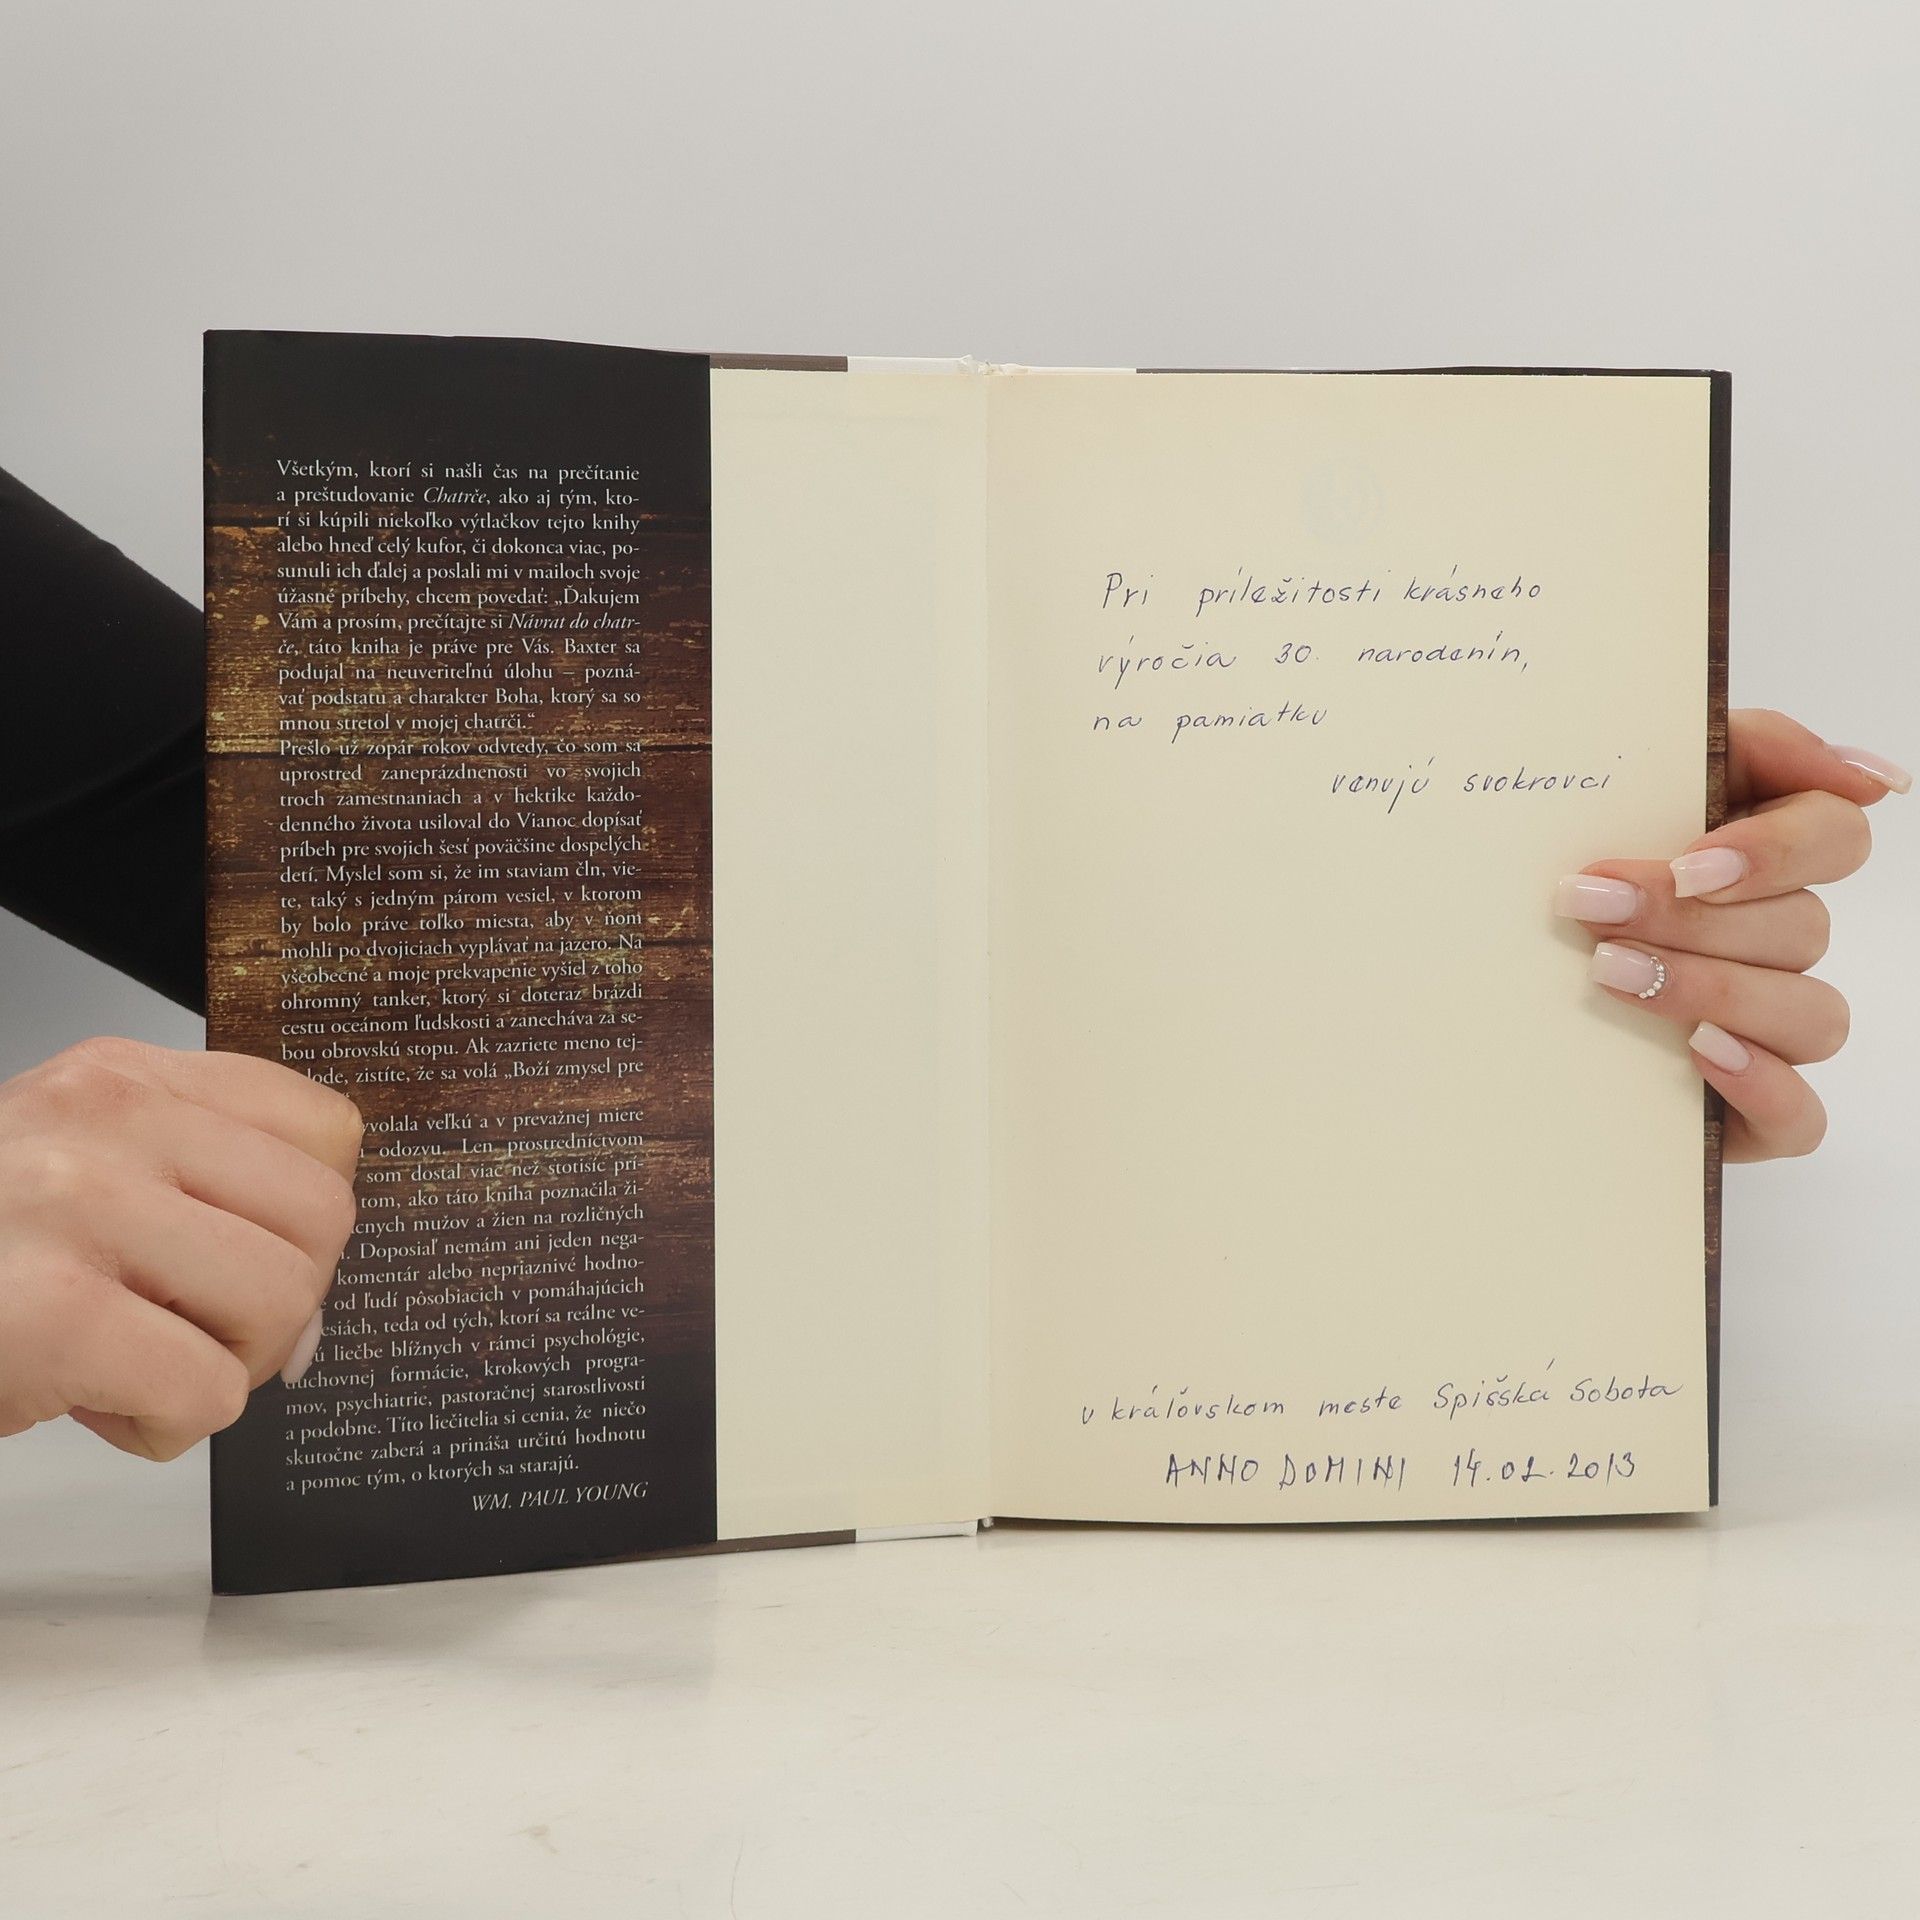 Všetkým, ktorí si našli čas na prečítanie
a preštudovanie Chatrče, ako aj tým, kto-
rí si kúpili niekoľko výtlačkov tejto knihy
alebo hneď celý kufor, či dokonca viac, po-
sunuli ich ďalej a poslali mi v mailoch svoje
úžasné príbehy, chcem povedať: „Ďakujem
Vám a prosím, prečítajte si Návrat do chatr-
če, táto kniha je práve pre Vás. Baxter sa
podujal na neuveriteľnú úlohu – pozná-
vať podstatu a charakter Boha, ktorý sa so
mnou stretol v mojej chatrči.“
Prešlo už zopár rokov odvtedy, čo som sa
uprostred zaneprázdnenosti vo svojich
troch zamestnaniach a v hektike každo-
denného života usiloval do Vianoc dopísať
príbeh pre svojich šesť poväčšine dospelých
detí. Myslel som si, že im staviam čln, vie-
te, taký s jedným párom vesiel, v ktorom
by bolo práve toľko miesta, aby v ňom
mohli po dvojiciach vyplávať na jazero. Na
všeobecné a moje prekvapenie vyšiel z toho
ohromný tanker, ktorý si doteraz brázdi
cestu oceánom ľudskosti a zanecháva za se-
bou obrovskú stopu. Ak zazriete meno tej-
lode, zistíte, že sa volá „Boží zmysel pre
yvolala veľkú a v prevažnej miere
odozvu. Len prostredníctvom
som dostal viac než stotisíc prí-
tom, ako táto kniha poznačila ži-
cnych mužov a žien na rozličných
. Doposiaľ nemám ani jeden nega-
komentár alebo nepriaznivé hodno-
od ľudí pôsobiacich v pomáhajúcich
esiách, teda od tých, ktorí sa reálne ve-
ú liečbe blížnych v rámci psychológie,
duchovnej formácie, krokových progra-
mov, psychiatrie, pastoračnej starostlivosti
a podobne. Títo liečitelia si cenia, že niečo
skutočne zaberá a prináša určitú hodnotu
a pomoc tým, o ktorých sa starajú.
WM. PAUL YOUNG
Pri príležitosti krásneho
výročia 30. narodenín,
na pamiatku
venujú svokrovci
v kráľovskom meste Spišská Sobota
ANNO DOMINI 14.02.2013